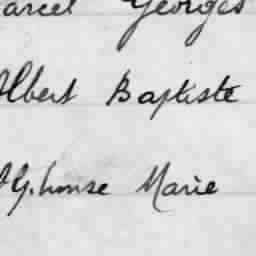 arcel Georges
Albert Baptiste
Alphonse Marie